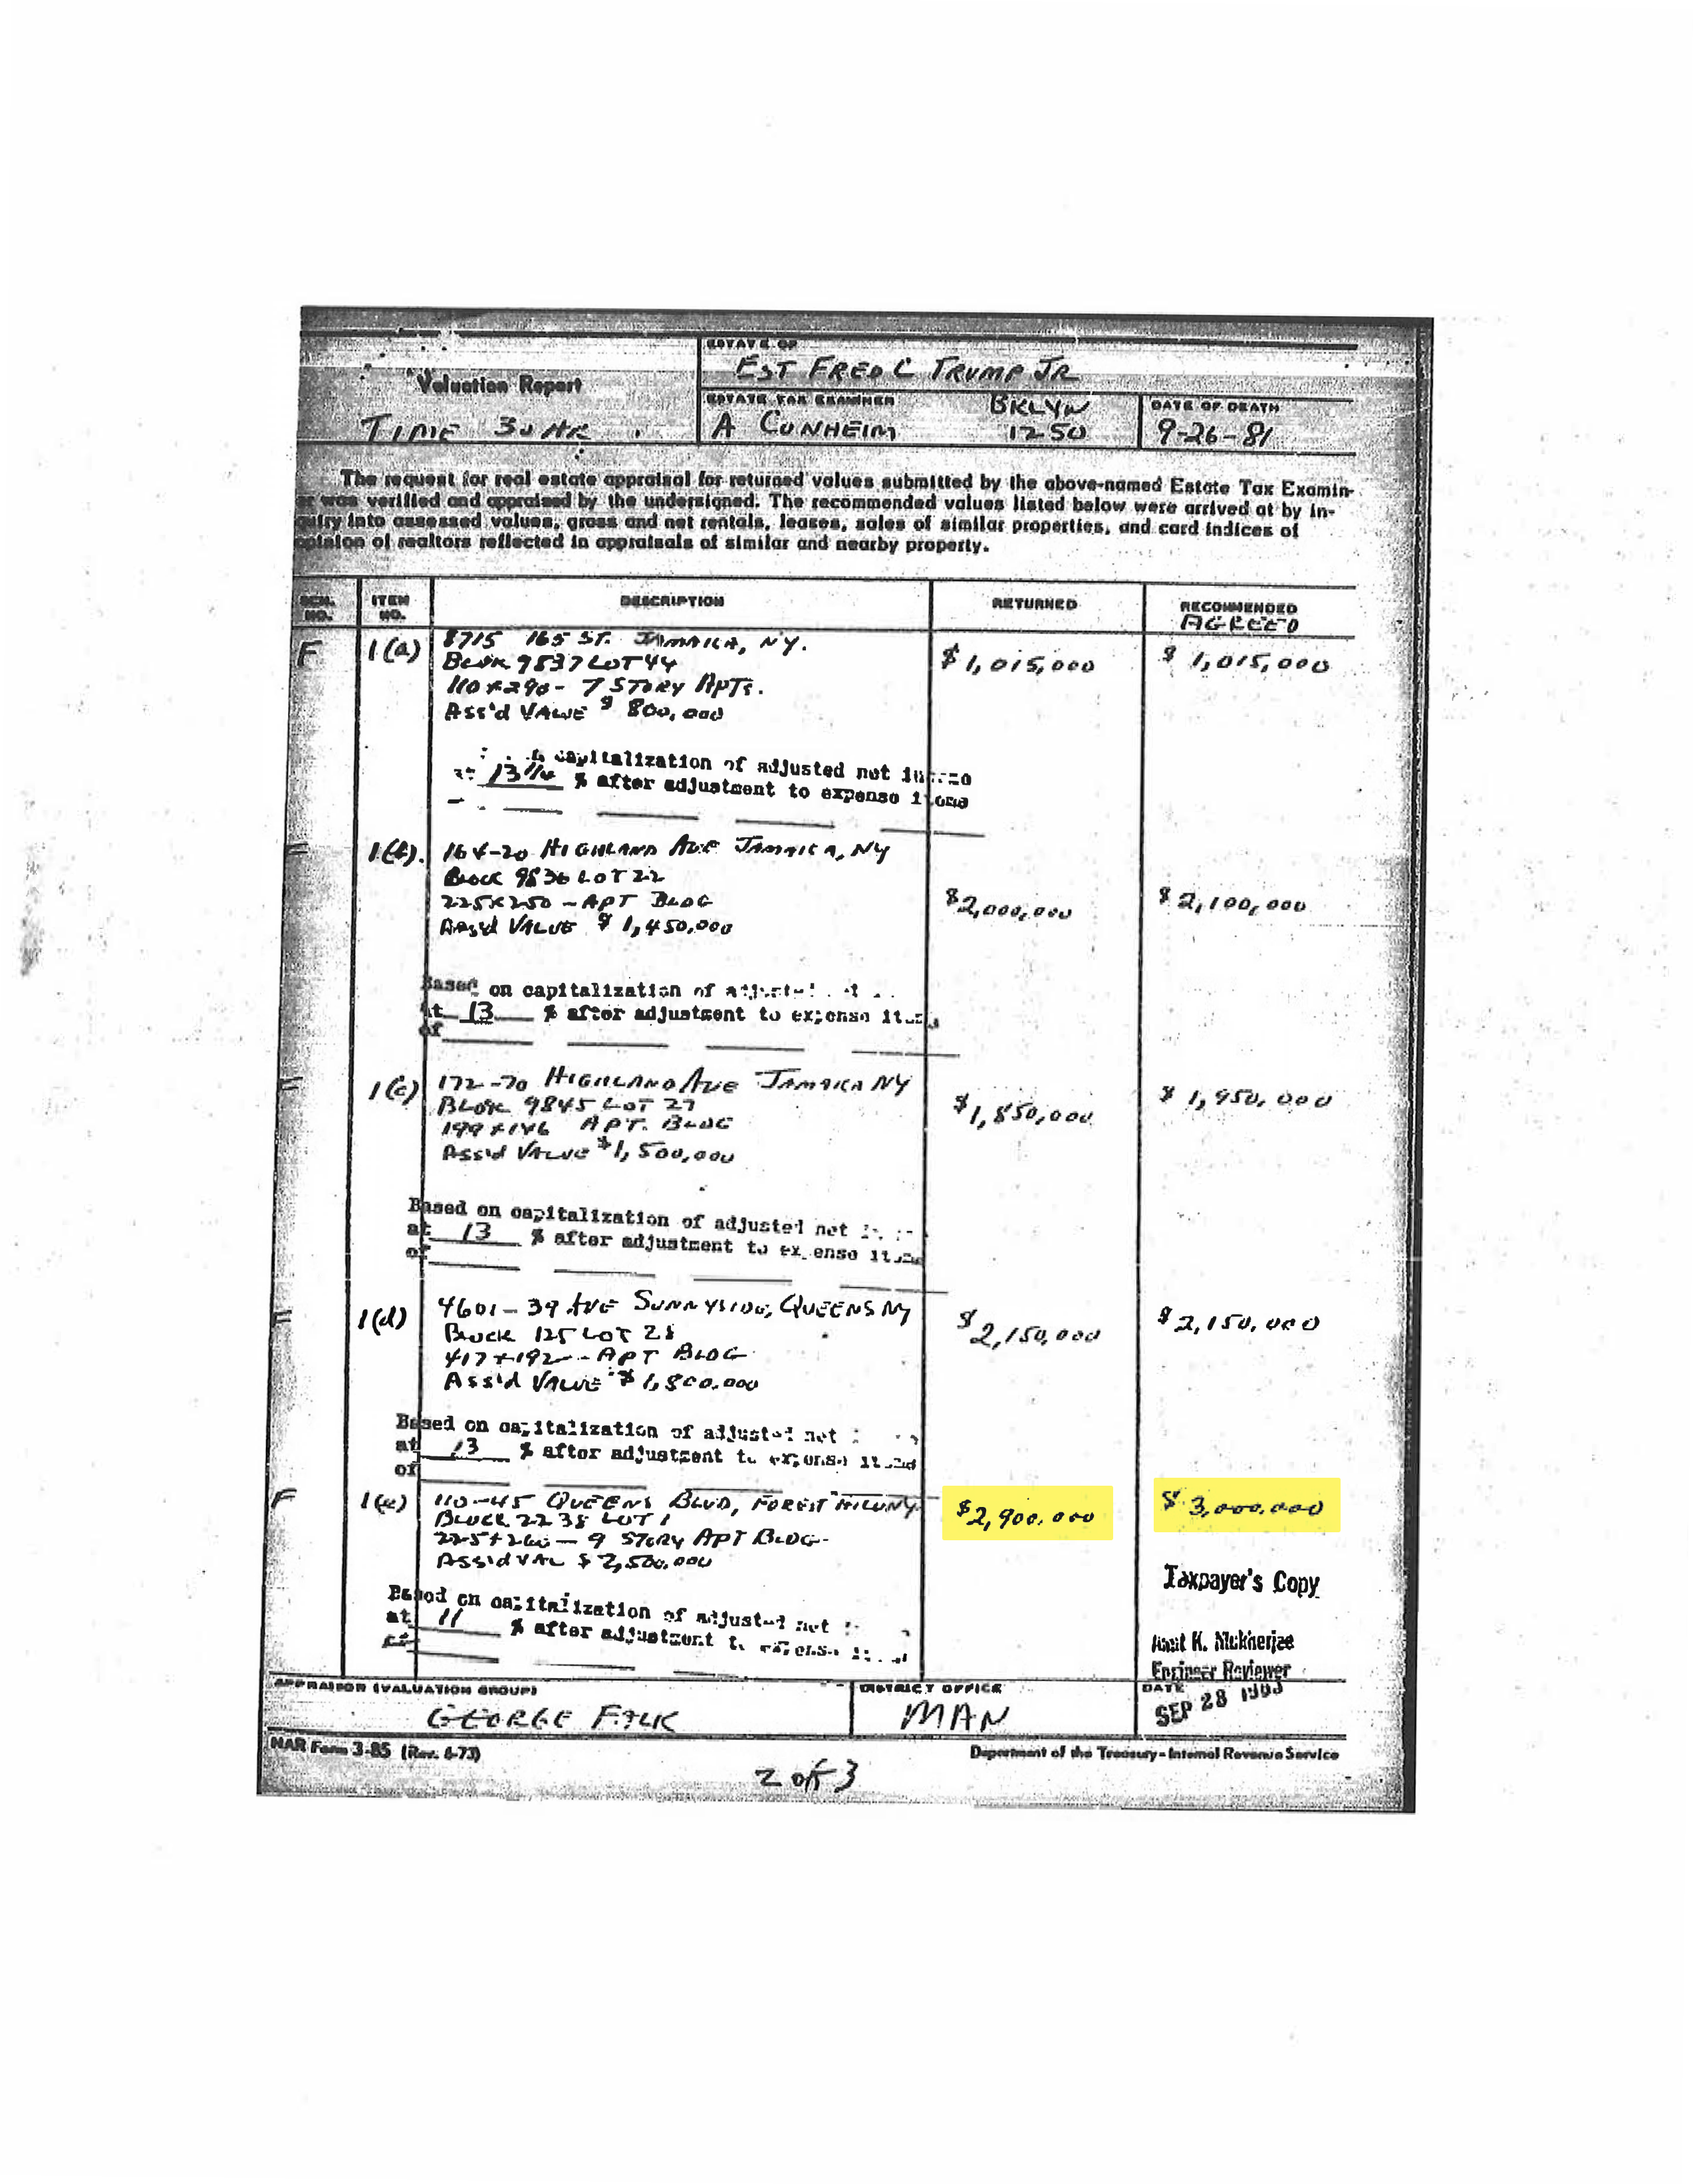 Valuation Report
TIME 30 HR.
ESTATE OF
EST FRED C TRUMP JR
ESTATE TAX EXAMINER
A CUNHEIM
BKLYN
1250
DATE OF DEATH
9-26-81
The request for real estate appraisal for returned values submitted by the above-named Estate Tax Examin-
er was verified and appraised by the undersigned. The recommended values listed below were arrived at by in-
quiry into assessed values, gross and net rentals, leases, sales of similar properties, and card indices of
opinion of realtors reflected in appraisals of similar and nearby property.
SCH. NO.
ITEM NO.
DESCRIPTION
RETURNED
RECOMMENDED
AGREED
F 1(a) 8715 165 ST. JAMAICA, NY.
BLOK 9837 LOT 44 $1,015,000 $1,015,000
110 x 290 - 7 STORY APTS.
ASS'd VALUE $ 800,000
capitalization of adjusted net
% after adjustment to expense items
F 1(b). 164-20 HIGHLAND AVE JAMAICA, NY
BLOCK 9836 LOT 22
225 x 250 - APT BLDG $2,000,000 $2,100,000
ASS'd VALUE $ 1,450,000
Based on capitalization of
at 13 % after adjustment to expense
of
F 1(c) 172-70 HIGHLAND AVE JAMAICA NY
BLOK 9845 LOT 27 $1,850,000 $1,950,000
199 x 146 APT. BLDG
ASS'd VALUE $1,500,000
Based on capitalization of adjusted net
at 13 % after adjustment to expense items
of
F 1(d) 4601-39 AVE SUNNYSIDE, QUEENS NY
BLOCK 125 LOT 28 $2,150,000 $2,150,000
417 x 192 - APT BLDG
ASS'd VALUE $ 1,800,000
Based on capitalization of adjusted net
at 13 % after adjustment to expense items
of
F 1(e) 110-45 QUEENS BLVD, FOREST HILL NY
BLOCK 2238 LOT 1 $2,900,000 $3,000,000
225 x 260 - 9 STORY APT BLDG
ASS'd VAL $ 2,500,000
Based on capitalization of adjusted net
at 11 % after adjustment to
Taxpayer's Copy
Amit K. Mukherjee
Engineer Reviewer
APPRAISOR (VALUATION GROUP)
GEORGE FALK
DISTRICT OFFICE
MAN
DATE
SEP 28 1983
NAR Form 3-85 (Rev. 6-73)
Department of the Treasury - Internal Revenue Service
2 of 3